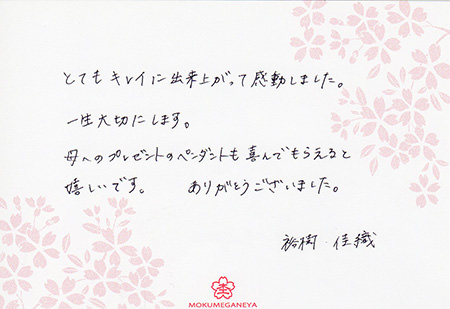 とてもキレイに出来上がって感動しました。
一生大切にします。
母へのプレゼントのペンダントも喜んでもらえると
嬉しいです。 ありがとうございました。
裕樹・佳織
MOKUMEGANEYA